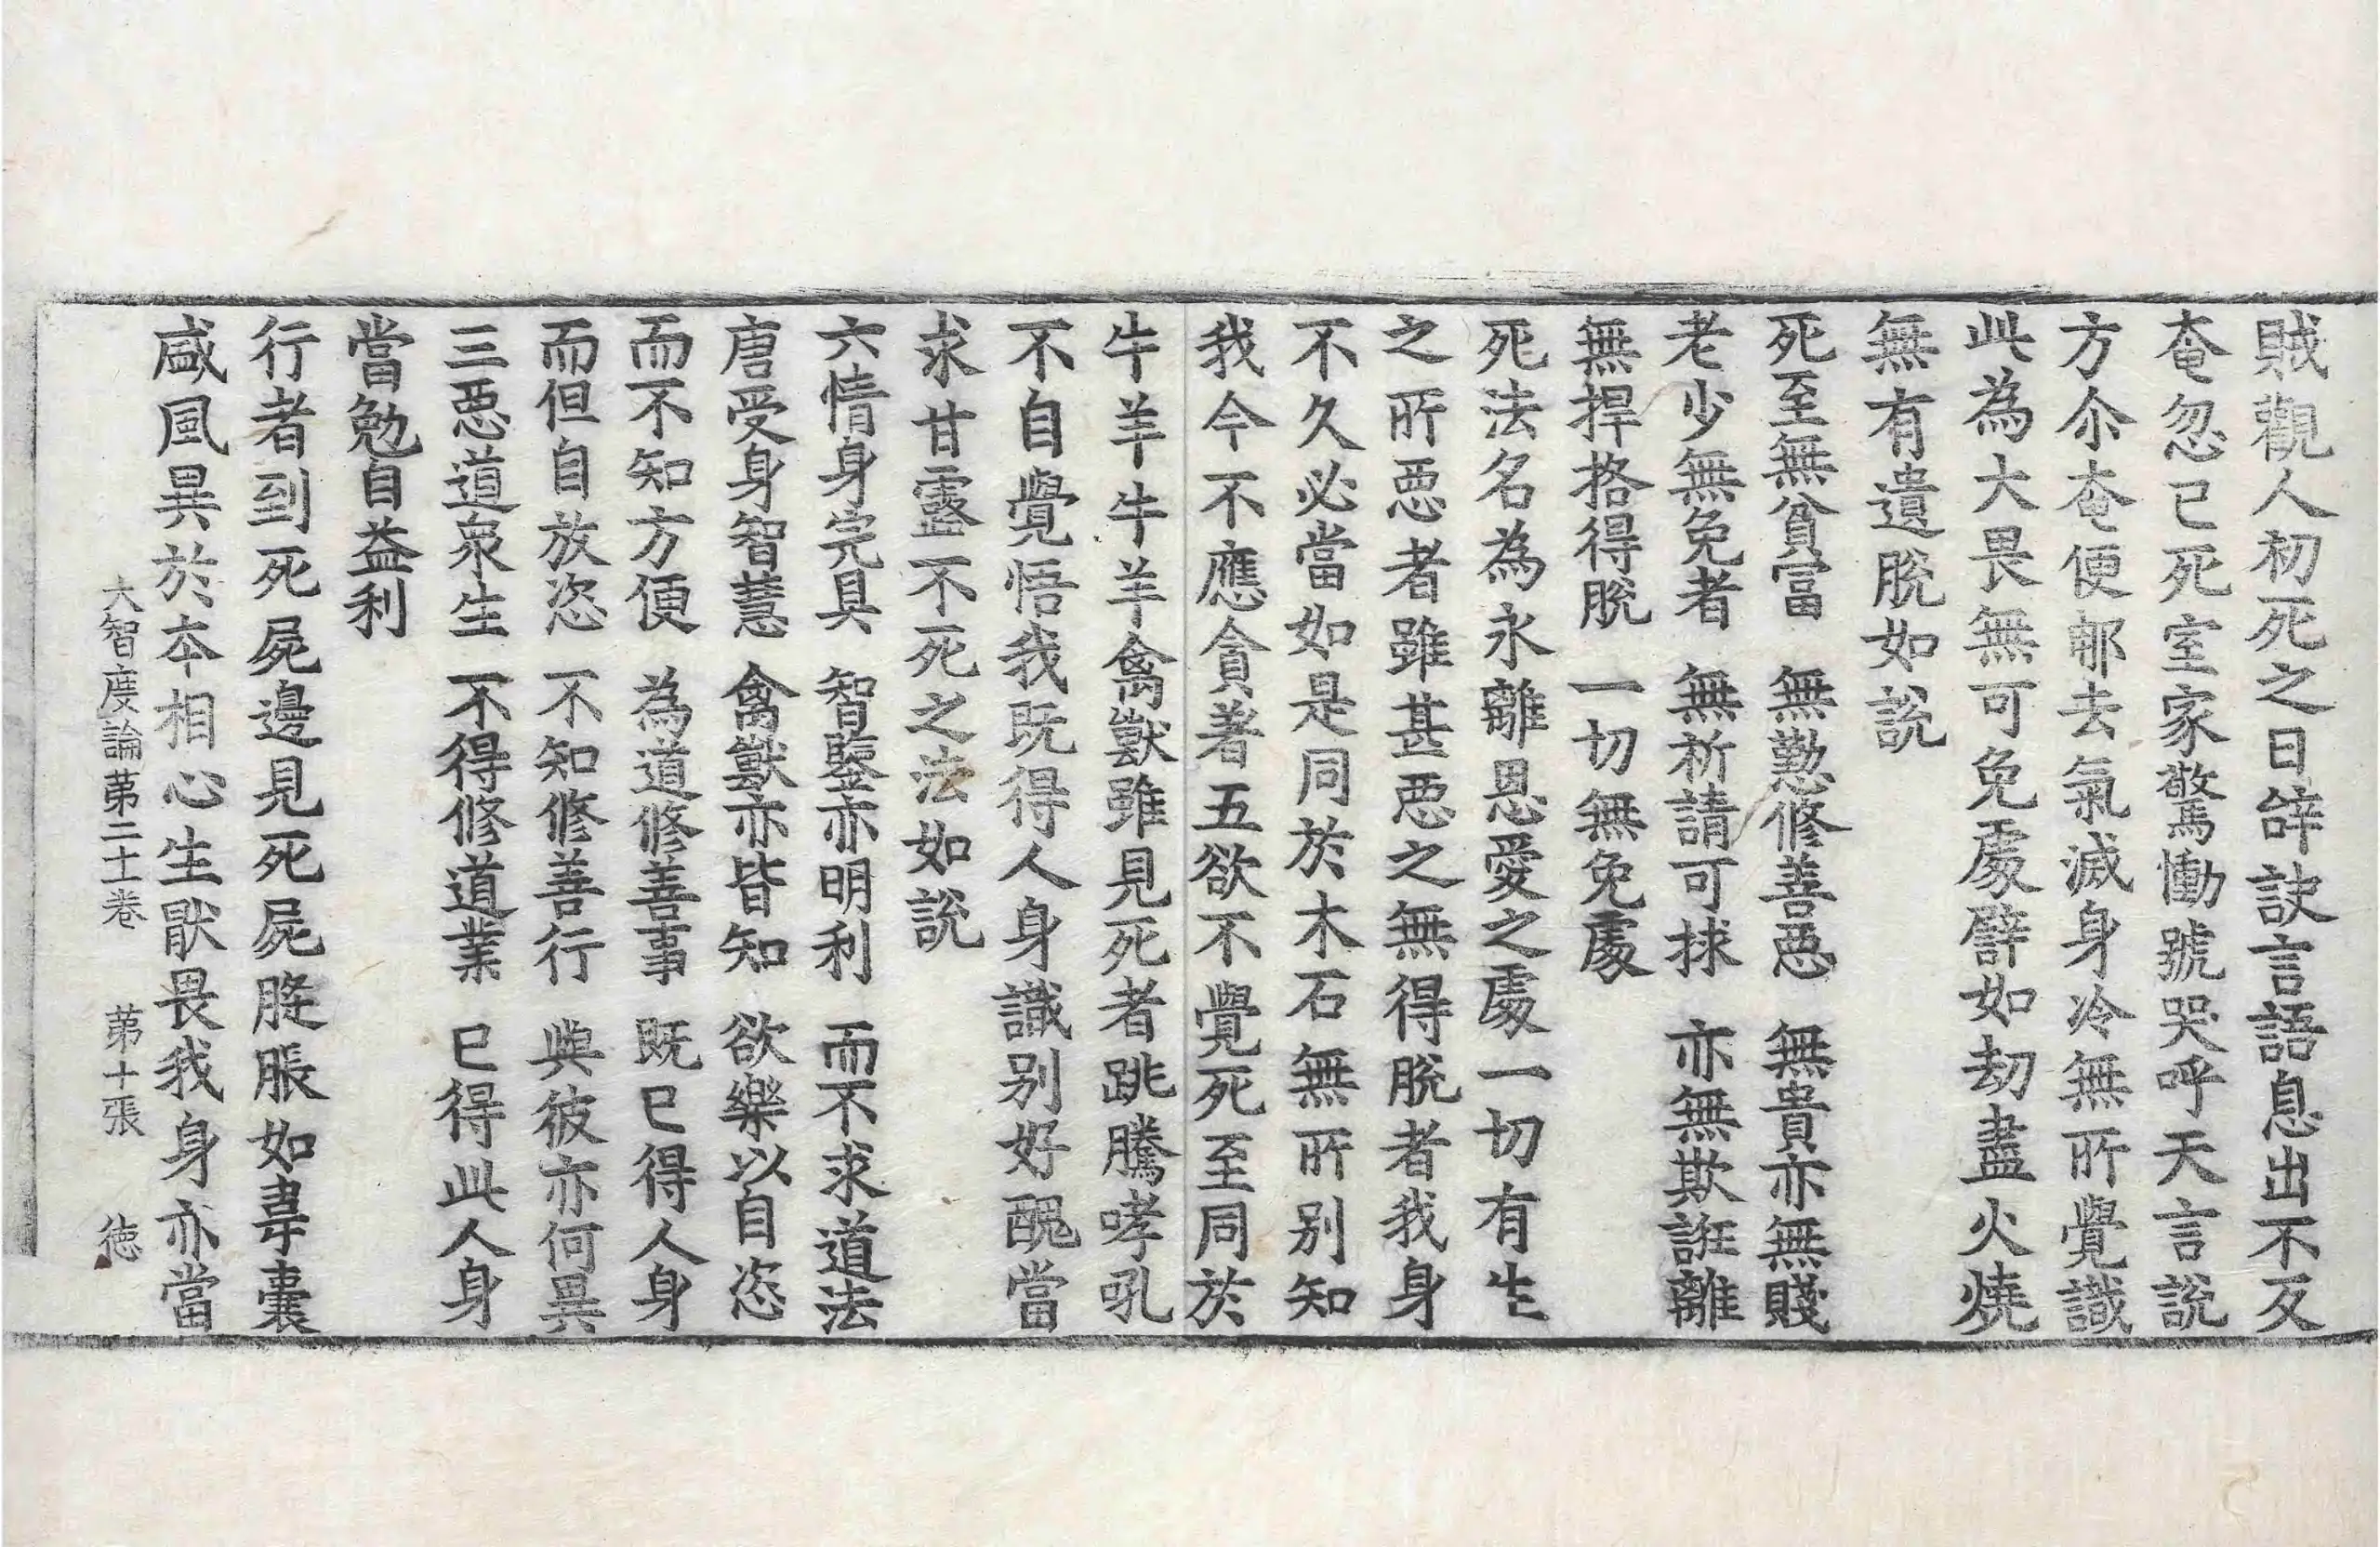 賊觀人初死之日辝訣言語息出不反
奄忽已死室家驚慟號哭呼天言說
方尒奄便郍去氣滅身冷無所覺識
此為大畏無可免處譬如劫盡火燒
無有遺脫如說
死至無貧富　無懃修善惡　無貴亦無賤
老少無免者　無祈請可捄　亦無欺誑離
無捍挌得脫　一切無免處
死法名為永離恩愛之處一切有生
之所惡者雖甚惡之無得脫者我身
不久必當如是同於木石無所別知
我今不應貪著五欲不覺死至同於
牛羊牛羊禽獸雖見死者跳騰哮吼
不自覺悟我既得人身識別好醜當
求甘露不死之法如說
六情身完具　智鑒亦明利　而不求道法
唐受身智慧　禽獸亦皆知　欲樂以自恣
而不知方便　為道修善事　既已得人身
而但自放恣　不知修善行　與彼亦何異
三惡道衆生　不得修道業　已得此人身
當勉自益利
行者到死屍邊見死屍膖脹如韋囊
盛風異於本相心生猒畏我身亦當
大智度論苐二十一卷　苐十張　徳